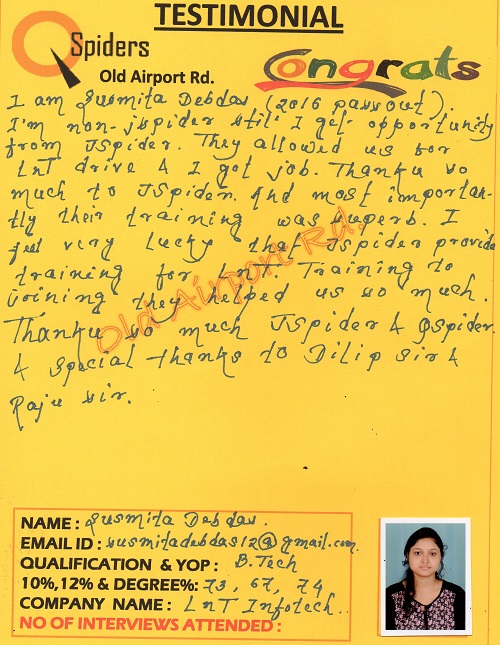 TESTIMONIAL
Spiders
Old Airport Rd.
Congrats
I am Susmita Debdas (2016 passout).
I'm non-jspider still I get opportunity
from JSpider. They allowed us for
LnT drive & I got job. Thanku so
much to JSpider. And most importan-
tly their training was superb. I
feel very lucky that JSpider provide
training for LnT. Training to
joining they helped us so much.
Thanku so much JSpider & QSpider
& special thanks to Dilip sir &
Raju sir.
Old Airport Rd.
NAME : Susmita Debdas.
EMAIL ID : susmitadebdas12@gmail.com
QUALIFICATION & YOP : B.Tech
10%,12% & DEGREE%: 73, 67, 74
COMPANY NAME : LnT Infotech.
NO OF INTERVIEWS ATTENDED :